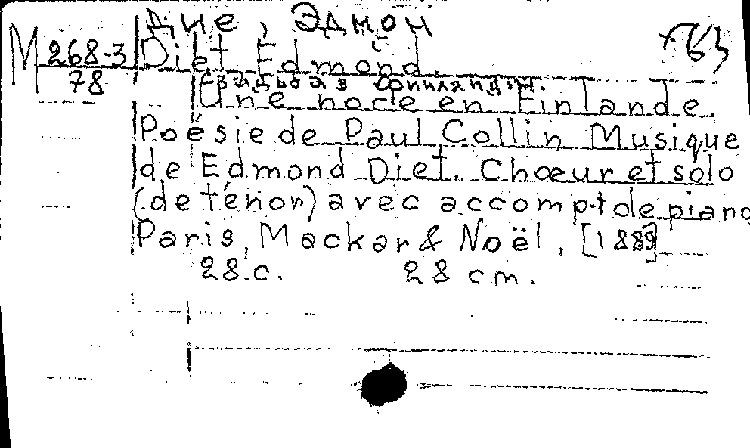 Дие, Эдмон
М 268-3
78
Diet Edmond.
Une noce en Finlande
Poésie de Paul Collin Musique
de Edmond Diet. Chœur et solo
(de ténor) avec accomp-t de piano
Paris, Mackar & Noël, [1889]
28 с. 28 cm.